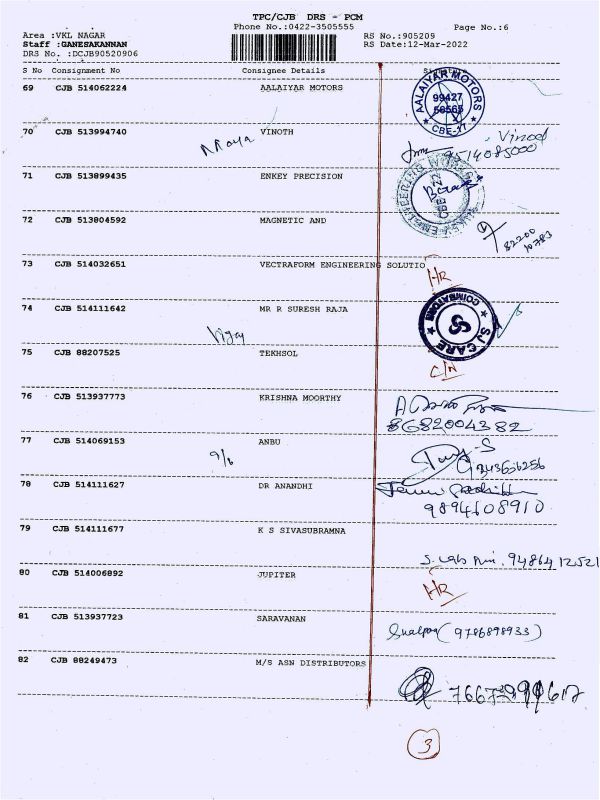 TPC/CJB DRS - PCM
Phone No.:0422-3505555 Page No.:6
Area :VKL NAGAR RS No.:905209
Staff :GANESAKANNAN RS Date:12-Mar-2022
DRS No. :DCJB90520906
S No Consignment No Consignee Details
69 CJB 514062224 AALAIYAR MOTORS
AALAIYAR MOTORS
99427
CBE-17
70 CJB 513994740 VINOTH
Vinod
9514085000
71 CJB 513899435 ENKEY PRECISION
72 CJB 513804592 MAGNETIC AND
82200
10783
73 CJB 514032651 VECTRAFORM ENGINEERING SOLUTIO
HR
74 CJB 514111642 MR R SURESH RAJA
COIMBATORE
SJ CARE
Vijay
75 CJB 88207525 TEKHSOL
C/N
76 CJB 513937773 KRISHNA MOORTHY
8682004382
77 CJB 514069153 ANBU
9/6
78 CJB 514111627 DR ANANDHI
9894608910
79 CJB 514111677 K S SIVASUBRAMNA
9486412521
80 CJB 514006892 JUPITER
HR
81 CJB 513937723 SARAVANAN
(9786898933)
82 CJB 88249473 M/S ASN DISTRIBUTORS
3